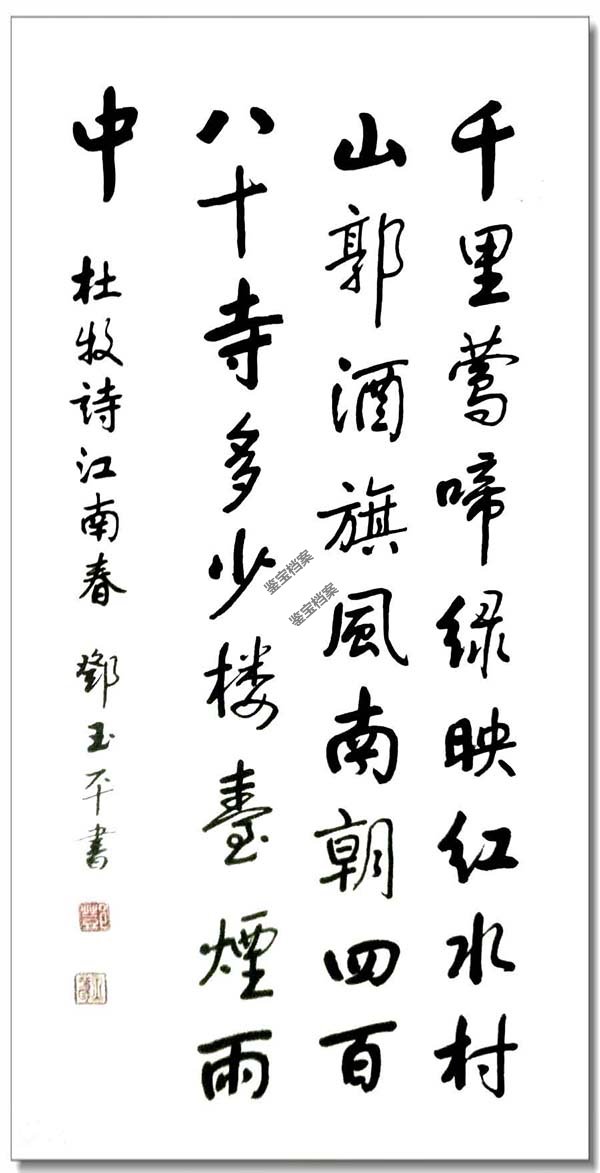 千里莺啼绿映红水村
山郭酒旗風南朝四百
八十寺多少楼臺煙雨
中
杜牧詩江南春 鄧玉平書
鉴宝档案
鉴宝档案